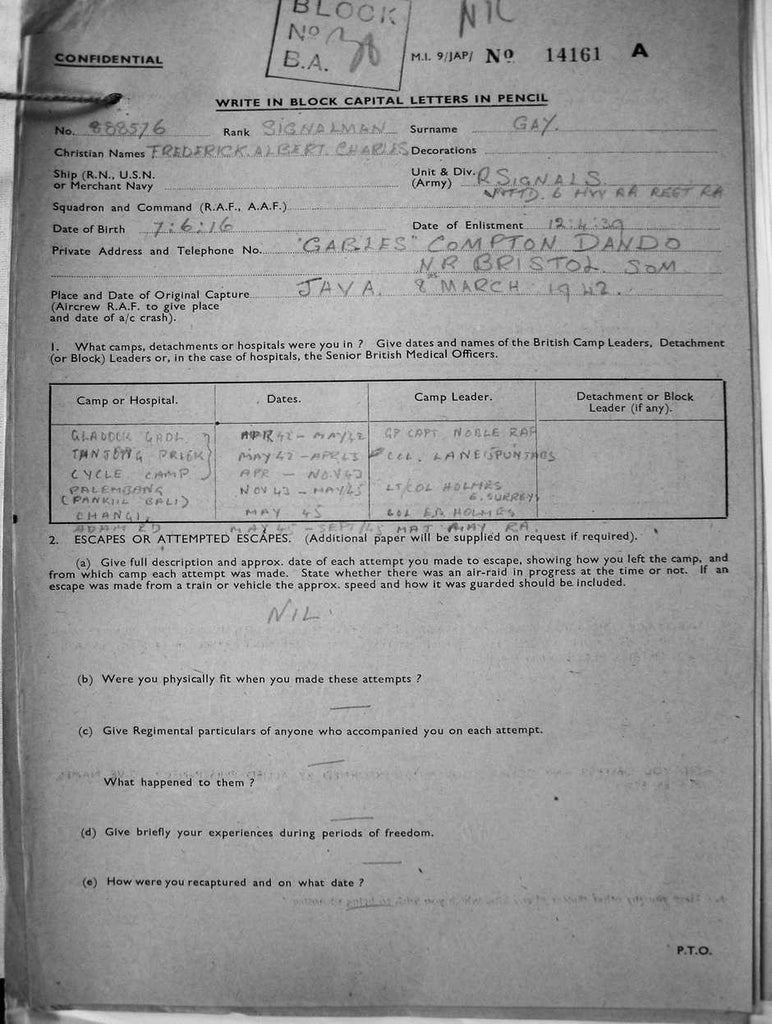 BLOCK
Nº
B.A.
NIL
CONFIDENTIAL
M.I. 9/JAP/ Nº 14161 A
WRITE IN BLOCK CAPITAL LETTERS IN PENCIL
No. 888576 Rank SIGNALMAN Surname GAY.
Christian Names FREDERICK. ALBERT. CHARLES Decorations
Ship (R.N., U.S.N.
or Merchant Navy
Unit & Div.
(Army) R SIGNALS.
6 HVY RA REGT RA
Squadron and Command (R.A.F., A.A.F.)
Date of Birth 7:6:16 Date of Enlistment 12:4:39
Private Address and Telephone No. "GABLES" COMPTON DANDO
NR BRISTOL. SOM
Place and Date of Original Capture JAVA. 8 MARCH 1942.
(Aircrew R.A.F. to give place
and date of a/c crash).
1. What camps, detachments or hospitals were you in ? Give dates and names of the British Camp Leaders, Detachment
(or Block) Leaders or, in the case of hospitals, the Senior British Medical Officers.
Camp or Hospital. Dates. Camp Leader. Detachment or Block
Leader (if any).
APR 42 - MAY 42 GP CAPT NOBLE RAF
TANJONG PRIEK MAY 42 - COL. LANE
CYCLE CAMP APR - NOV 43
PALEMBANG NOV 43 - MAY 45 LT/COL HOLMES
E. SURREYS
CHANGI. MAY 45 COL HOLMES
MAY 45 - SEPT/45 RA.
2. ESCAPES OR ATTEMPTED ESCAPES. (Additional paper will be supplied on request if required).
(a) Give full description and approx. date of each attempt you made to escape, showing how you left the camp, and
from which camp each attempt was made. State whether there was an air-raid in progress at the time or not. If an
escape was made from a train or vehicle the approx. speed and how it was guarded should be included.
NIL.
(b) Were you physically fit when you made these attempts ?
(c) Give Regimental particulars of anyone who accompanied you on each attempt.
What happened to them ?
(d) Give briefly your experiences during periods of freedom.
(e) How were you recaptured and on what date ?
P.T.O.